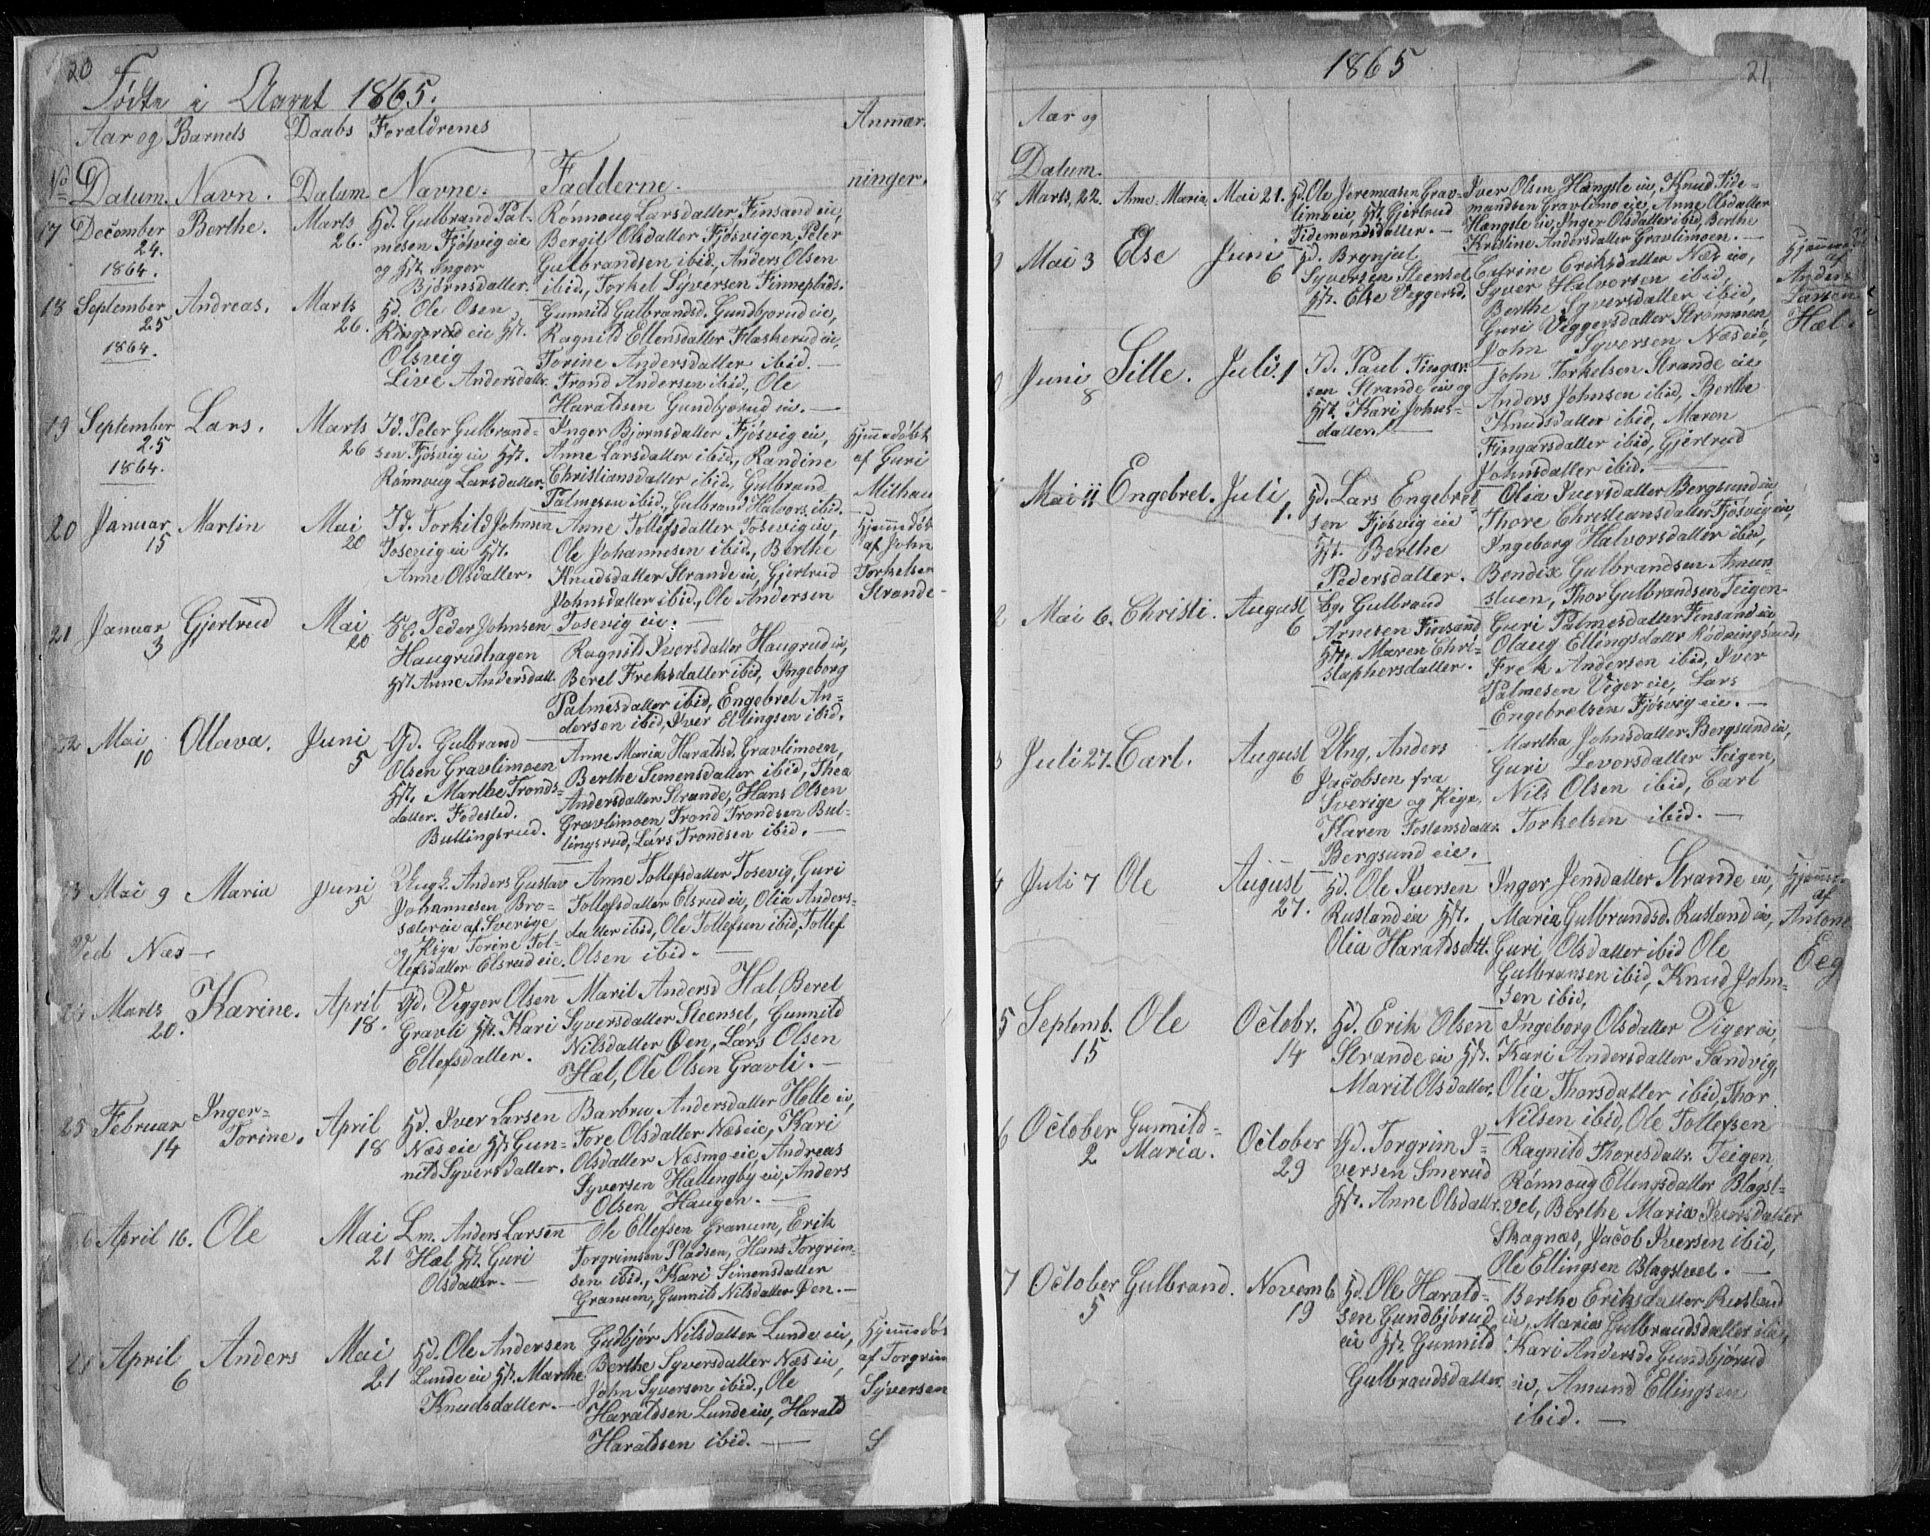 20
Fødte i Aaret 1865.
Aar og Barnets Daabs Forældrenes Anmær-
No Datum. Navn. Datum. Navne. Fadderne. ninger.
17 December 24. 1864. Berthe. Marts 26.
Gd. Gulbrand Pal-
mesen Fjösvig eie
og Hst. Inger
Bjørnsdatter.
Rønnoug Larsdatter Finsand eie,
Bergit Olsdatter Fjösvigen, Peter
Gulbrandsen ibid., Anders Olsen
ibid., Torkel Syversen Finneplads.
18 September 25 1864. Andreas. Marts 26.
Hd. Ole Osen,
Ringerud eie Hst.
Olsvig
Live Andersdattr.
Gunnild Gulbrandsd. Gundbjørud eie,
Ragnild Ellensdatter Flaskerud eie,
Torine Andersdatter ibid. —
Trond Andersen ibid, Ole
Haraldsen Gundbjørud eie. —
19 September 25 1864. Lars. Marts 26
Id. Peter Gulbrand-
sen Fjösvig eie Hst.
Rønnoug Larsdatter.
Inger Bjørnsdatter Fjösvig eie,
Anne Larsdatter ibid., Randine
Christiansdatter ibid., Gulbrand
Palmesen ibid., Gulbrand Halvors. ibid.
Hjemmedøbt
af Guri
20 Januar 15 Martin Mai 20
Id. Torkild Johnsen
Tosevig eie Hst.
Anne Olsdatter.
Anne Tollefsdatter, Tosevig eie,
Ole Johannesen ibid., Berthe
Knudsdatter Strande eie, Gjertrud
Johnsdatter ibid., Ole Andersen
Tosevig eie. —
Hjemmedøb
af John
Torkelsen
Strande
21 Januar 3 Gjertrud Mai 20
Peder Johnsen
Haugrudhagen
Hst Anne Andersdatt.
Ragnild Iversdatter Haugrud eie,
Beret Freksdatter ibid, Ingeborg
Palmesdatter ibid, Engebret An-
dersen ibid, Iver Ellingsen ibid.
22 Mai 10 Ollava. Juni 5
Gd. Gulbrand
Olsen Gravlimoen
Hst. Marthe Tronds-
datter. Fødested.
Bullingsrud.
Anne Maria Haraldsd. Gravlimoen,
Berthe Simensdatter ibid, Thea
Andersdatter Strande, Hans Olsen
Gravlimoen Trond Trondsen Bul-
lingsrud, Lars Trondsen ibid. —
23 Mai 9 Maria Juni 5
Ungk. Anders Gustav
Johannesen Bro-
sæter eie af Sverige
og Pige Torine Tol-
lefsdatter Elsrud eie.
Anne Tollefsdatter Tosevig, Guri
Tollefsdatter Elsrud eie, Olia Anders-
datter ibid, Ole Tollefsen ibid, Tollef
Olsen ibid. —
Ved Næs —
24 Marts 20. Karine. April 18.
Gd. Vigger Olsen
Gravli Hst. Kari
Ellefsdatter.
Marit Andersd Hæl, Beret
Syversdatter Steensel, Gunnild
Nilsdatter Øen, Lars Olsen
Hæl, Ole Olsen Gravli. —
25 Februar 14 Inger-
Torine. April 18
Hd. Iver Larsen
Næs eie Hst Gun-
nild Syversdatter.
Barbru Andersdatter Helle eie,
Tore Olsdatter Næs eie, Kari
Olsdatter Næsmo eie, Andreas
Syversen Hallingby eie, Anders
Olsen Haugen. —
26 April 16. Ole Mai 21
Lm. Anders Larsen
Hæl Hst. Guri
Olsdatter. —
Ole Ellefsen Granum, Erik
Torgrimsen Pladsen, Hans Torgrim-
sen ibid., Kari Simensdatter
Granum, Gunnild Nilsdatter Øen. —
April 6 Anders Mai 21
Hd. Ole Andersen
Lunde eie Hst. Marthe
Knudsdatter. —
Gudbjør Nilsdatter Lunde eie,
Berthe Syversdatter Næs eie,
John Syversen ibid., Ole
Haraldsen Lunde eie, Harald
Haraldsen ibid. —
Hjemmedøb
af Torgrim
Syversen
1865
21
Aar og
Datum.
8 Marts 22. Anne Maria Mai 21.
Hd. Ole Jeremiasen Grav-
limo eie, Hst. Gjertrud
Tidemandsdatter. —
Iver Olsen Hængsle eie, Knud Tide-
mandsen Gravlimo eie, Anne Olsdatter
Hængsle eie, Inger Olsdatter ibid, Berthe
Kristine Andersdatter Gravlimoen. —
9 Mai 3 Else Juni 6
Gd. Brynjul
Syversen Steensel,
Hst. Else Veggersd.
Catrine Eriksdatter Næs eie,
Syver Halvorsen ibid,
Berthe Syversdatter ibid,
Guri Viggersdatter Strømmen,
John Syversen Næs eie,
Hjemmed
af
Anders
Larsen
Hæl.
0 Juni 8 Sille. Juli 1
Id. Paul Fingar-
sen Strande eie og
Hst. Kari Johns-
datter. —
John Torkelsen Strande eie
Anders Johnsen ibid, Berthe
Knudsdatter ibid, Maren
Fingarsdatter ibid, Gjertrud
Johnsdatter ibid. —
1 Mai 11 Engebret. Juli 1.
Hd. Lars Engebret-
sen Fjösvig eie
Hst. Berthe
Pedersdatter.
Olia Iversdatter Bergsund eie
Thore Christiansdatter Fjösvig eie,
Ingeborg Halvorsdatter ibid,
Bendix Gulbrandsen Amun-
stuen, Thor Gulbrandsen Teigen.
2 Mai 6. Christi. August 6
Gulbrand
Arnesen Finsand
Hst. Maren Chri-
stophersdatter.
Guri Palmesdatter Finsand eie
Olaug Ellingsdatter Rødningsand,
Frek Andersen ibid, Iver
Palmesen Viger eie, Lars
Engebretsen Fjösvig eie. —
3 Juli 27. Carl. August 6
Ung. Anders
Jacobsen fra
Sverige og Pige.
Karen Tostensdattr.
Bergsund eie.
Martha Johnsdatter Bergsund eie,
Guri Levorsdatter Teigen,
Nils Olsen ibid, Carl
Torkelsen ibid. —
4 Juli 7 Ole August 27.
Hd. Ole Iversen
Rusland eie Hst.
Olia Haraldsdtt.
Inger Jensdatter Strande eie,
Maria Gulbrandsd. Rusland eie,
Guri Olsdatter ibid Ole
Gulbransen ibid, Knud John-
sen ibid,
Hjemme
af
Antone
Eeg
5 Septemb. 15 Ole Octobr. 14
Hd. Erik Olsen
Strande eie Hst.
Marit Olsdatter.
Ingeborg Olsdatter Viger eie,
Kari Andersdatter Sandvig,
Olia Thorsdatter ibid, Thor
Nilsen ibid, Ole Tollefsen
6 October 2 Gunnild-
Maria. October 29
Gd. Torgrim I-
versen Smerud
Hst. Anne Olsdattr.
Ragnild Thoresdattr. Teigen,
Rønnoug Ellingsdatter Blagst-
vet, Berthe Maria Iversdatter
Skagnæs, Jacob Iversen ibid,
Ole Ellingsen Blagstvet. —
7 October 5 Gulbrand. Novemb 19
Hd. Ole Harald-
sen Gundbjørud
eie Hst. Gunnild
Gulbrandsdatter.
Berthe Eriksdatter Rusland
eie, Maria Gulbrandsdatter ibid,
Kari Andersd. Gundbjørud
eie, Amund Ellingsen
ibid. —